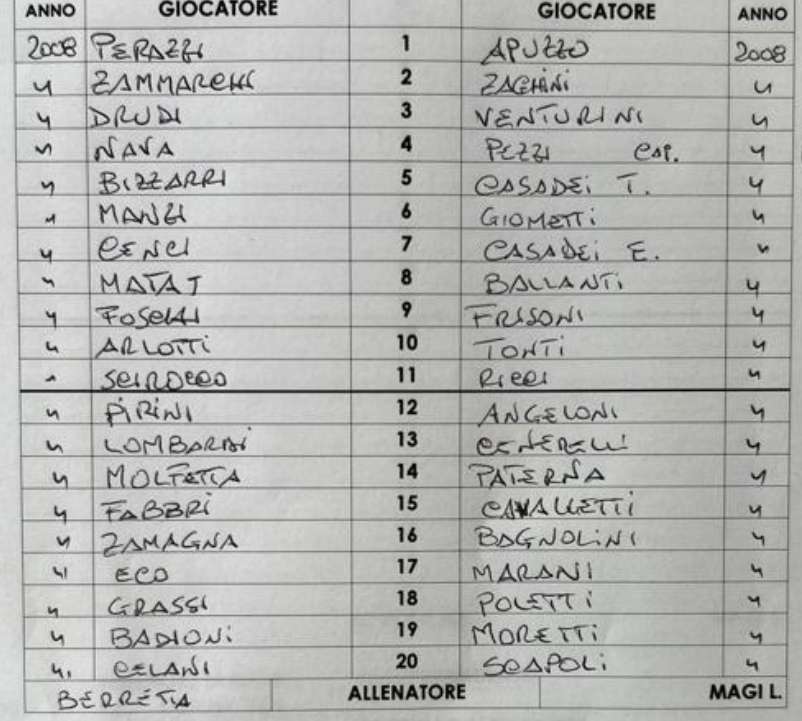 ANNO GIOCATORE GIOCATORE ANNO
2008 PERAZZI 1 APUZZO 2008
" ZAMMARCHI 2 ZAGHINI "
" DRUDI 3 VENTURINI "
" NAVA 4 PEZZI CAP. "
" BIZZARRI 5 CASADEI T. "
" MANZI 6 GIOMETTI "
" CENCI 7 CASADEI E. "
" MATAJ 8 BALLANTI "
" FOSCHI 9 FRISONI "
" ARLOTTI 10 TONTI "
" SCIROCCO 11 RICCI "
" PIRINI 12 ANGELONI "
" LOMBARDI 13 CENERELLI "
" MOLFETTA 14 PATERNA "
" FABBRI 15 CAVALLETTI "
" ZAMAGNA 16 BAGNOLINI "
" ECO 17 MARANI "
" GRASSI 18 POLETTI "
" BADIONI 19 MORETTI "
" CELANI 20 SCAPOLI "
BERRETTA ALLENATORE MAGI L.